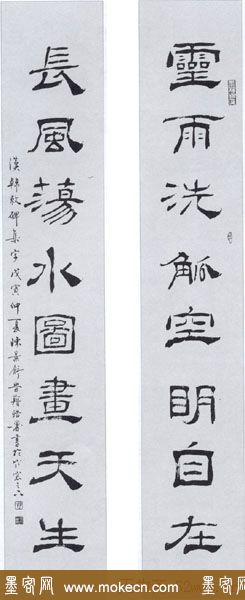 靈雨洗觚空明自在
長風蕩水圖畫天生
漢韓敕碑集字戊寅仲夏陳景舒
墨客网 www.mokecn.com 墨客网